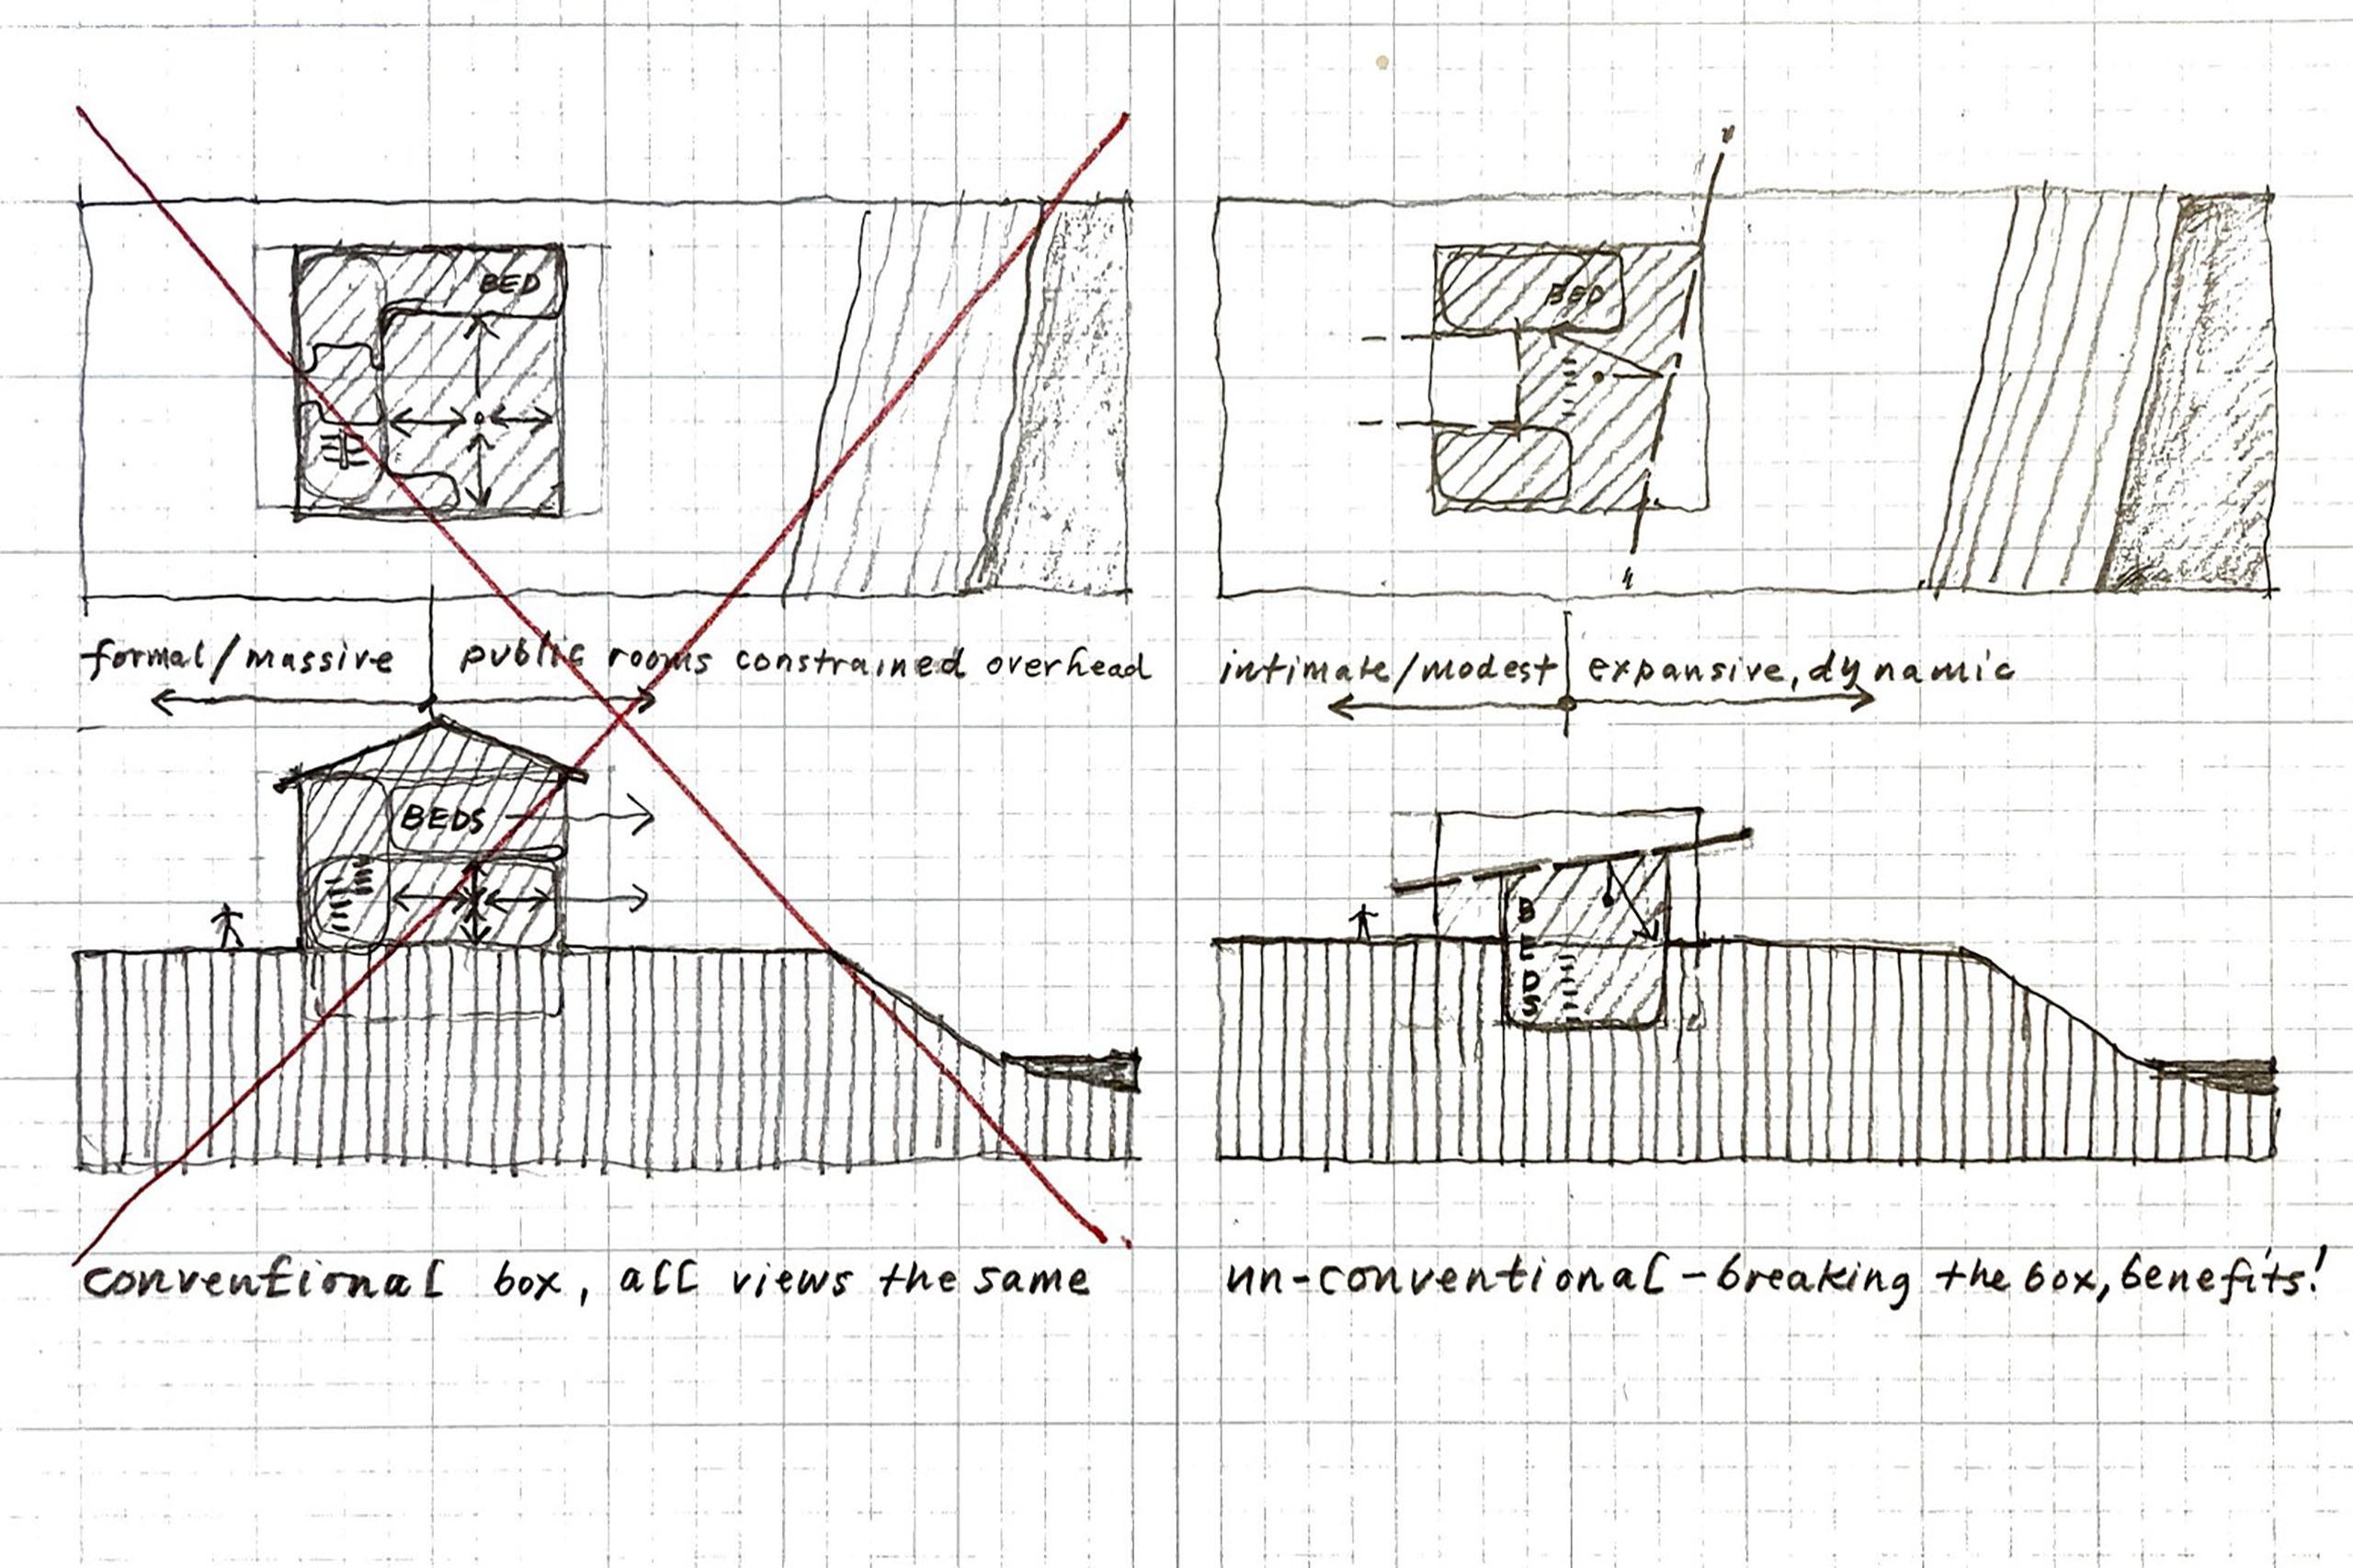 BED
formal/massive
public rooms constrained overhead
BEDS
conventional box, all views the same
BED
intimate/modest
expansive, dynamic
BEDS
un-conventional - breaking the box, benefits!